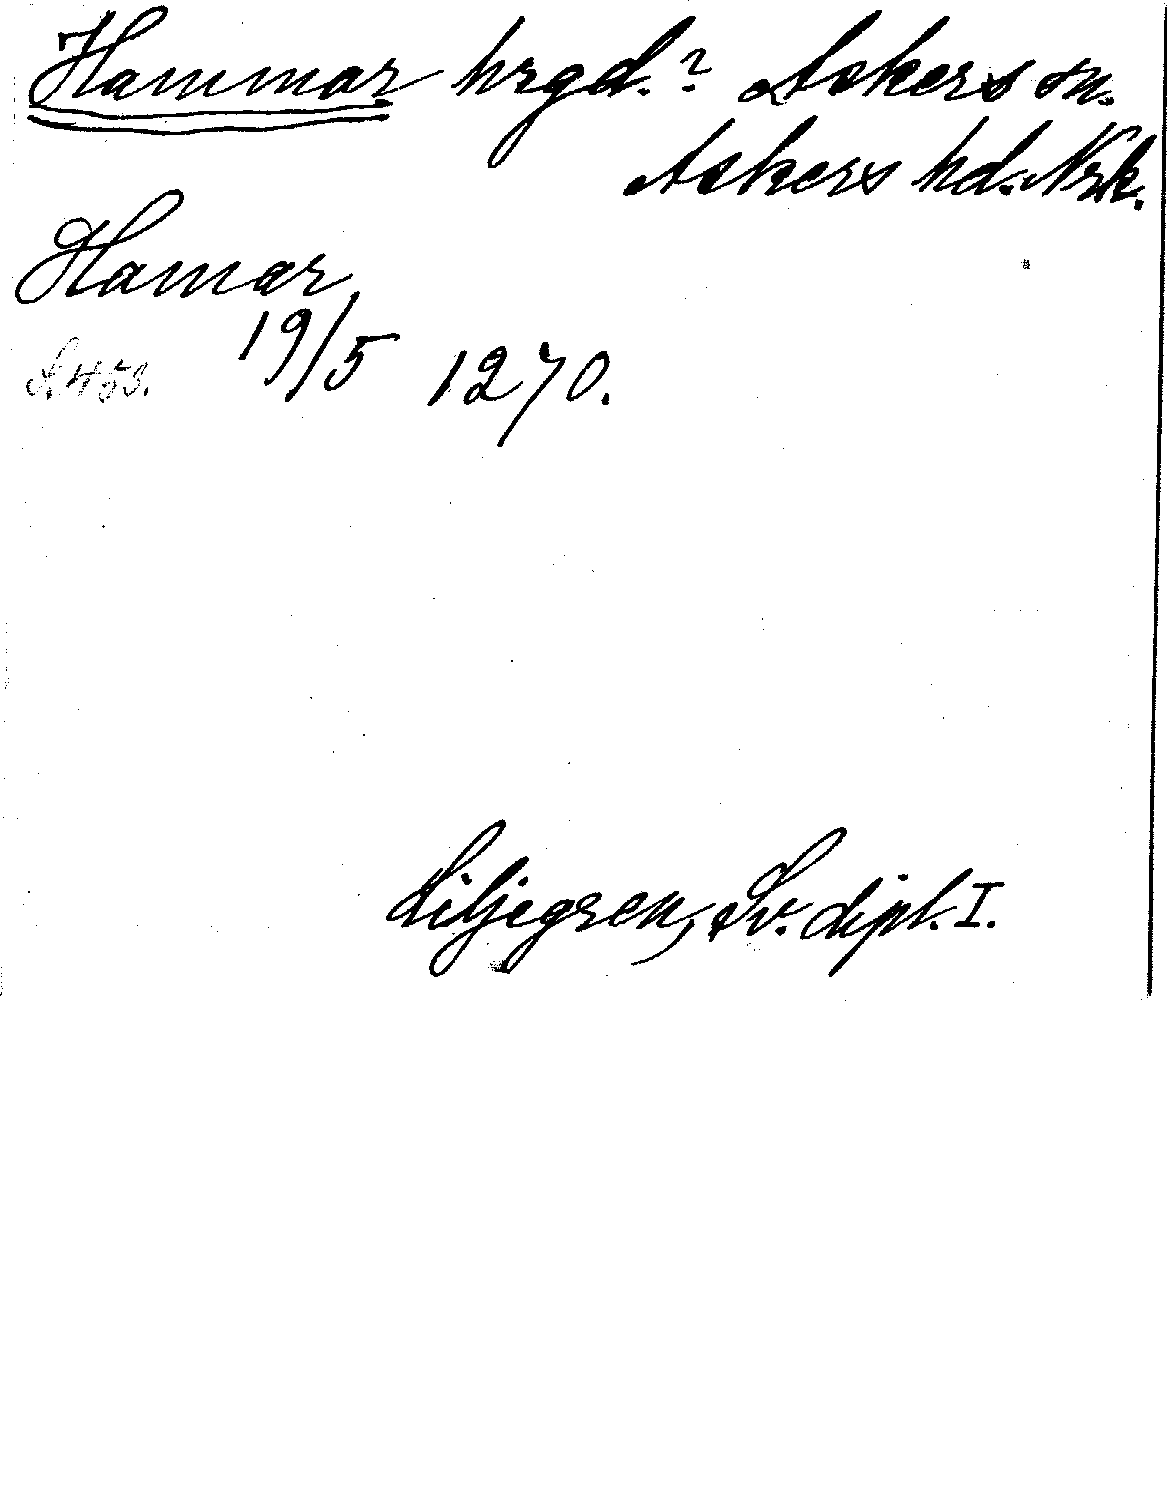 Hammar hrgd.? Askers sn.
Askers hd. Nrk.
Hamar
19/5 1270.
S. 453.
Liljegren, Sv. dipl. I.